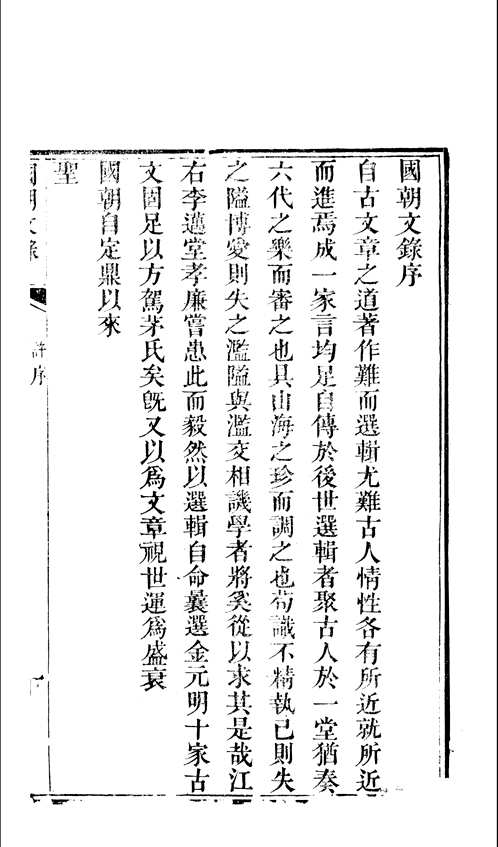 國朝文錄序
自古文章之道著作難而選輯尤難古人情性各有所近就所近
而進焉成一家言均足自傳於後世選輯者聚古人於一堂猶奏
六代之樂而審之也具山海之珍而調之也苟識不精執己則失
之隘博愛則失之濫隘與濫交相譏學者將奚從以求其是哉江
右李邁堂孝廉嘗患此而毅然以選輯自命曩選金元明十家古
文固足以方駕茅氏矣旣又以爲文章視世運爲盛衰
國朝自定鼎以來
聖
國朝文錄 許序 一